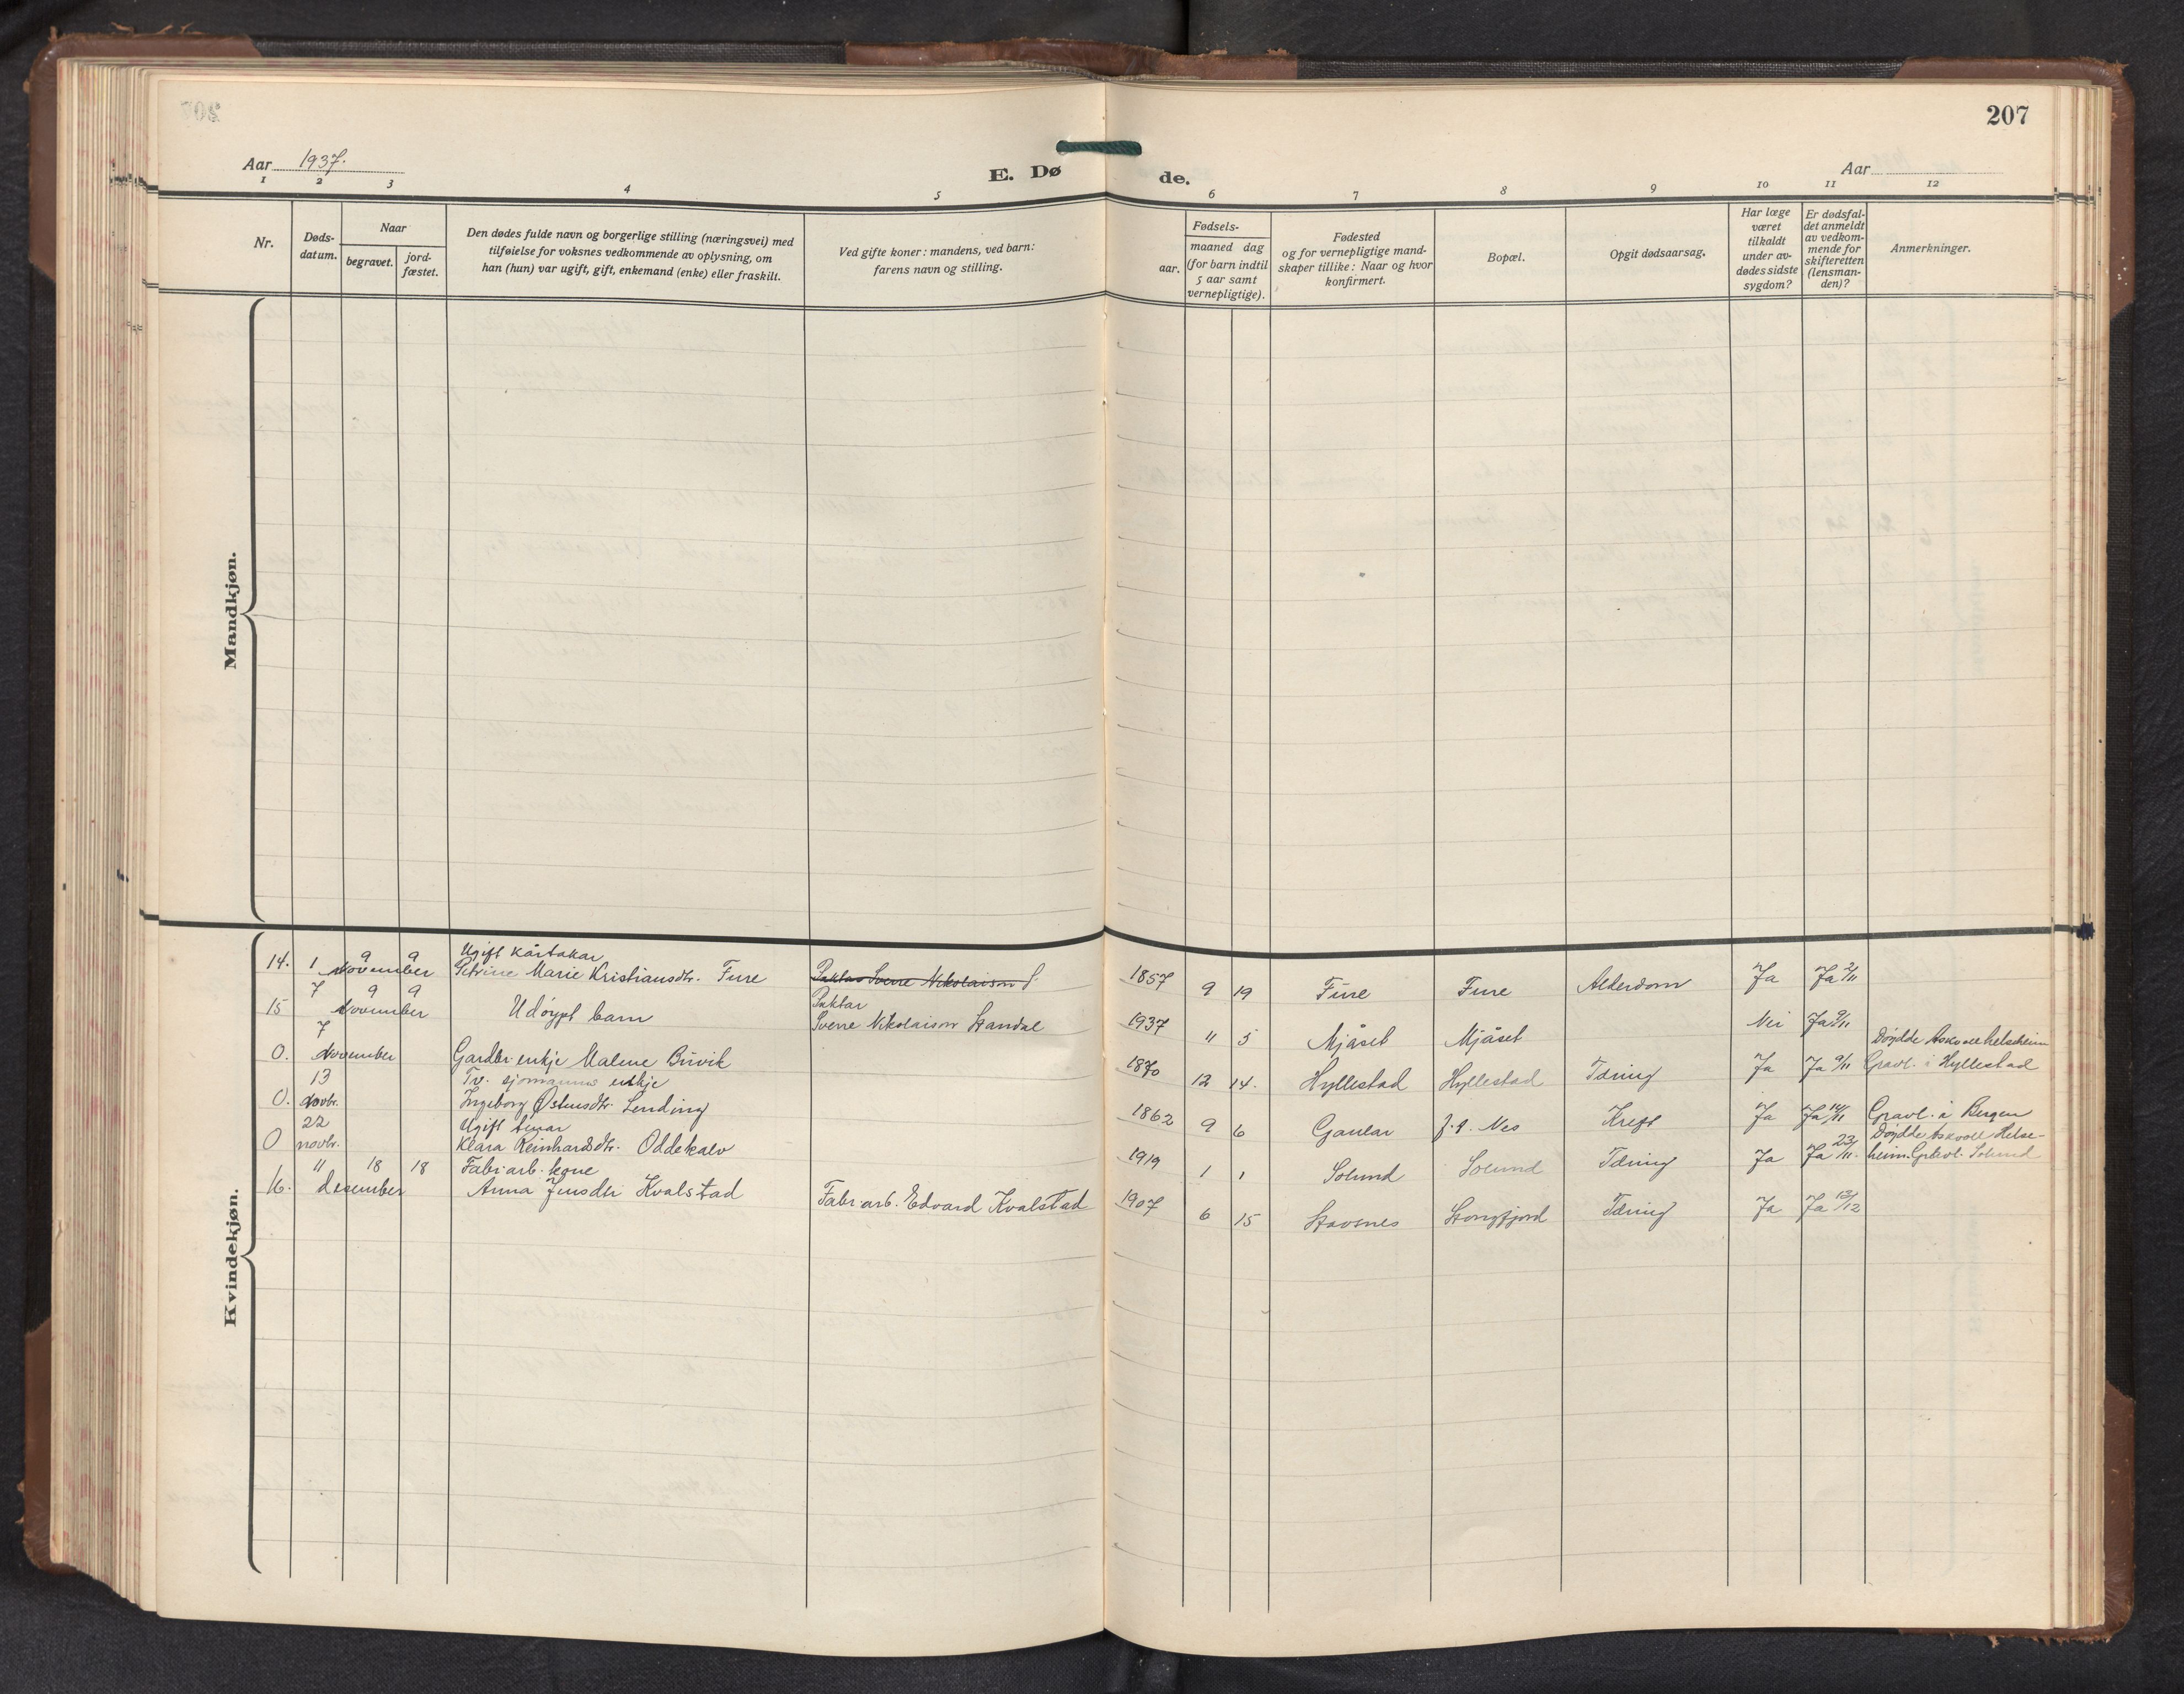 207
Aar 1937.
E. Dø
de.
Aar
1 2 3 4 5 6 7 8 9 10 11 12
Nr.
Døds-
datum.
Naar
begravet.
jord-
fæstet.
Den dødes fulde navn og borgerlige stilling (næringsvei) med
tilføielse for voksnes vedkommende av oplysning, om
han (hun) var ugift, gift, enkemand (enke) eller fraskilt.
Ved gifte koner: mandens, ved barn:
farens navn og stilling.
Fødsels-
aar.
maaned dag
(for barn indtil
5 aar samt
vernepligtige).
Fødested
og for vernepligtige mand-
skaper tillike: Naar og hvor
konfirmert.
Bopæl.
Opgit dødsaarsag.
Har læge
været
tilkaldt
under av-
dødes sidste
sygdom?
Er dødsfal-
det anmeldt
av vedkom-
mende for
skifteretten
(lensman-
den)?
Anmerkninger.
Mandkjøn.
Kvindekjøn.
Ugift kårtakar
14. 1 november 9 9 Petrine Marie Kristiansdtr. Fure Paktar Sverre Nikolaison S 1857 9 19 Fure Fure Alderdom Ja Ja 2/11
Paktar
15 7 november 9 9 Udøypt barn Sverre Nikolaison Standal 1937 11 5 Mjåset Mjåset Nei Ja 9/11
Døydde Askvoll helseheim
0. 7 november Gardbr. enkje Malene Buvik 1870 12 14. Hyllestad Hyllestad Tæring Ja Ja 9/11 Gravl. i Hyllestad
Tv. sjømanns enkje
0. 13 novbr. Ingeborg Østensdtr. Lending 1862 9 6 Gaular Nes Kreft Ja Ja 14/11 Gravl. i Bergen
Ugift
Døydde Askvoll Helse-
0 22 novbr. Klara Reinhardsdtr. Oddekalv 1919 1 1 Solund Solund Tæring Ja Ja 23/11. heim. Gravl. Solund
Fabr.arb. kone
16. 11 desember 18 18 Anna Jensdtr Kvalstad Fabr.arb. Edvard Kvalstad 1907 6 15 Stavenes Stongfjord Tæring Ja Ja 13/12